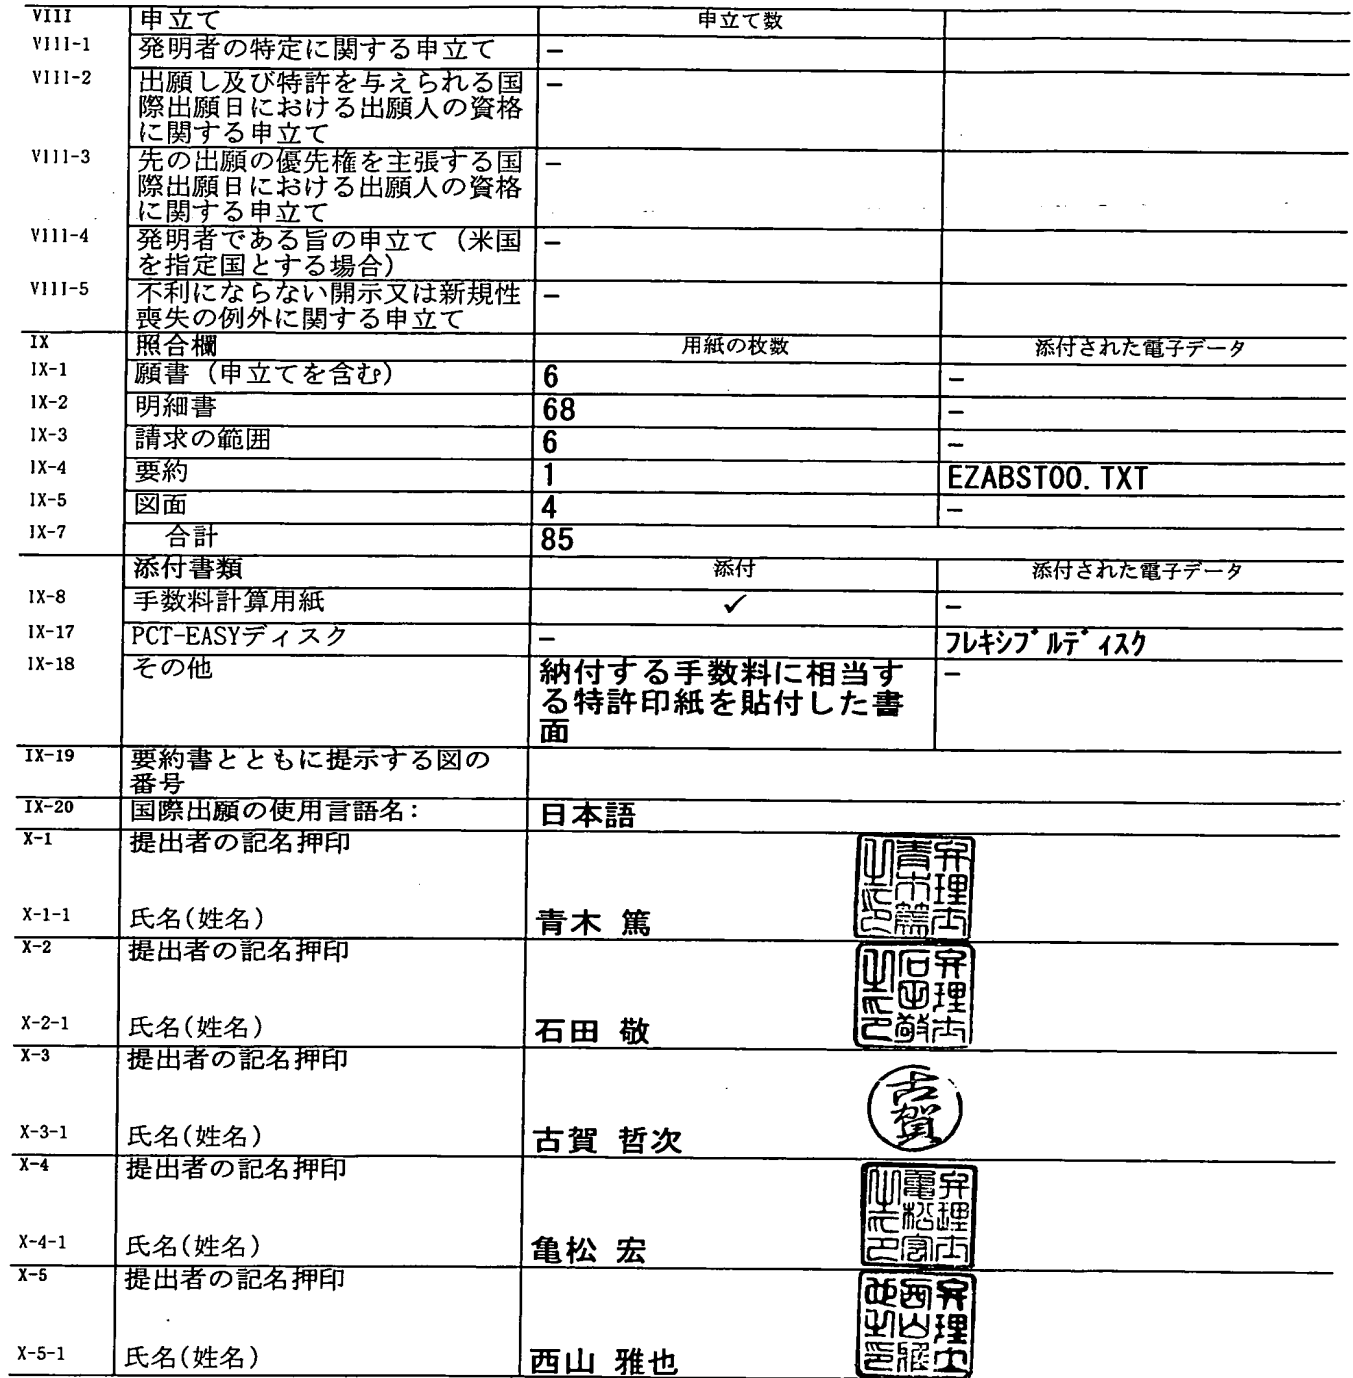 VIII 申立て 申立て数
VIII-1 発明者の特定に関する申立て –
VIII-2 出願し及び特許を与えられる国 –
際出願日における出願人の資格
に関する申立て
VIII-3 先の出願の優先権を主張する国 –
際出願日における出願人の資格
に関する申立て
VIII-4 発明者である旨の申立て（米国 –
を指定国とする場合）
VIII-5 不利にならない開示又は新規性 –
喪失の例外に関する申立て
IX 照合欄 用紙の枚数 添付された電子データ
IX-1 願書（申立てを含む） 6 –
IX-2 明細書 68 –
IX-3 請求の範囲 6 –
IX-4 要約 1 EZABST00.TXT
IX-5 図面 4 –
IX-7 合計 85
添付書類 添付 添付された電子データ
IX-8 手数料計算用紙 ✓ –
IX-17 PCT-EASYディスク – フレキシブルディスク
IX-18 その他 納付する手数料に相当す –
る特許印紙を貼付した書
面
IX-19 要約書とともに提示する図の
番号
IX-20 国際出願の使用言語名: 日本語
X-1 提出者の記名押印
弁理士青木篤之印
X-1-1 氏名(姓名) 青木 篤
X-2 提出者の記名押印
弁理士石田敬之印
X-2-1 氏名(姓名) 石田 敬
X-3 提出者の記名押印
古賀
X-3-1 氏名(姓名) 古賀 哲次
X-4 提出者の記名押印
弁理士亀松宏之印
X-4-1 氏名(姓名) 亀松 宏
X-5 提出者の記名押印
弁理士西山雅也之印
X-5-1 氏名(姓名) 西山 雅也